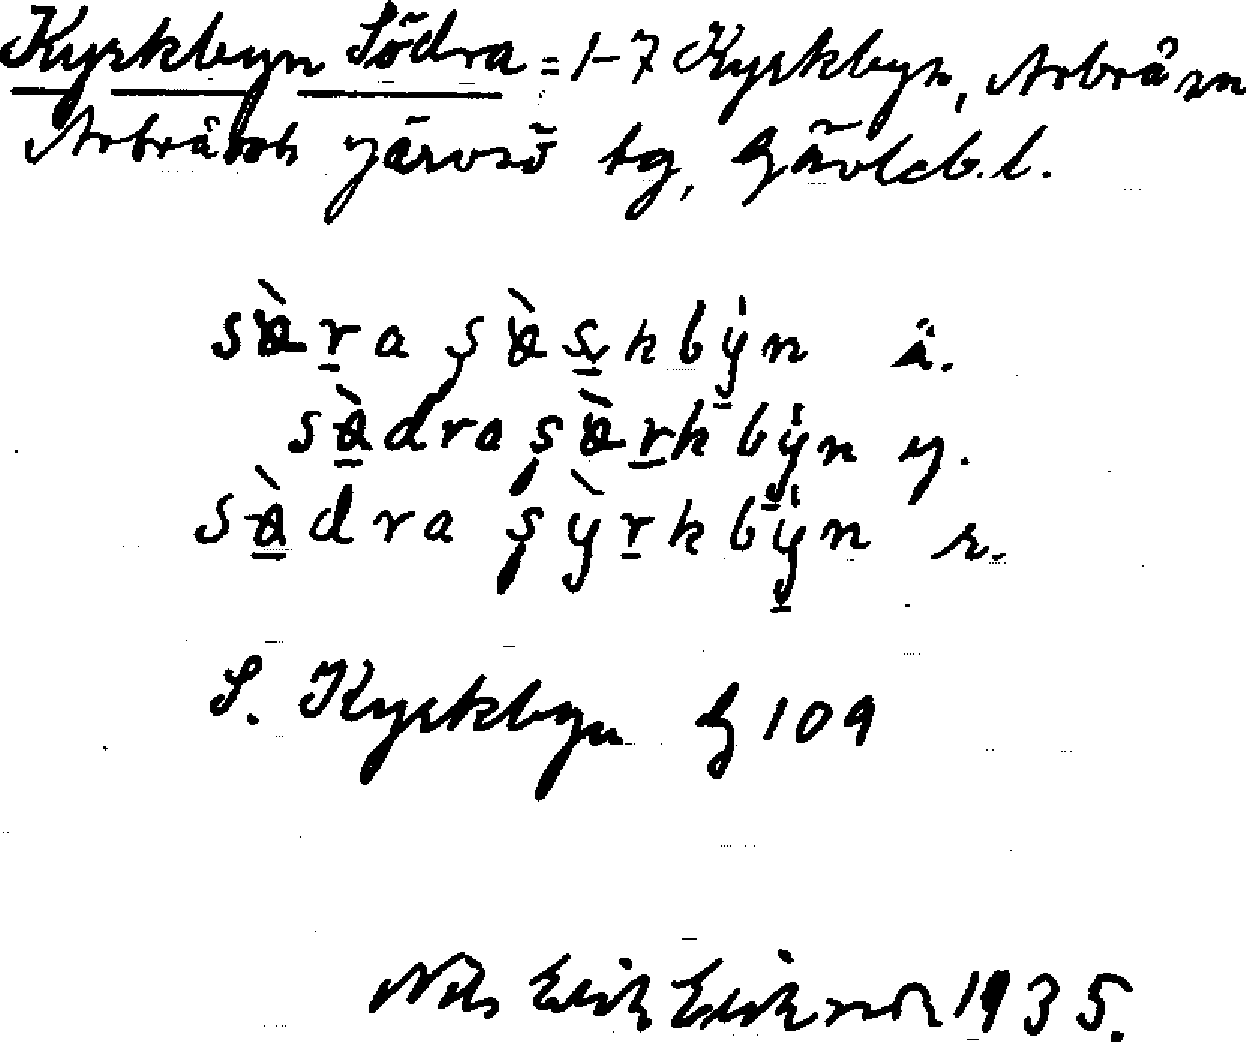 Kyrkbyn Södra = 1-7 Kyrkbyn, Arbrå sn
Arbrå och Järvsö tg, Gävleb. l.
sὰra şὰskbẏn ä.
sὰdra şὰrkbẏn y.
sὰdra şỳrkbẏn r.
S. Kyrkbyn G 109
Nils Erik Eriksson 1935.